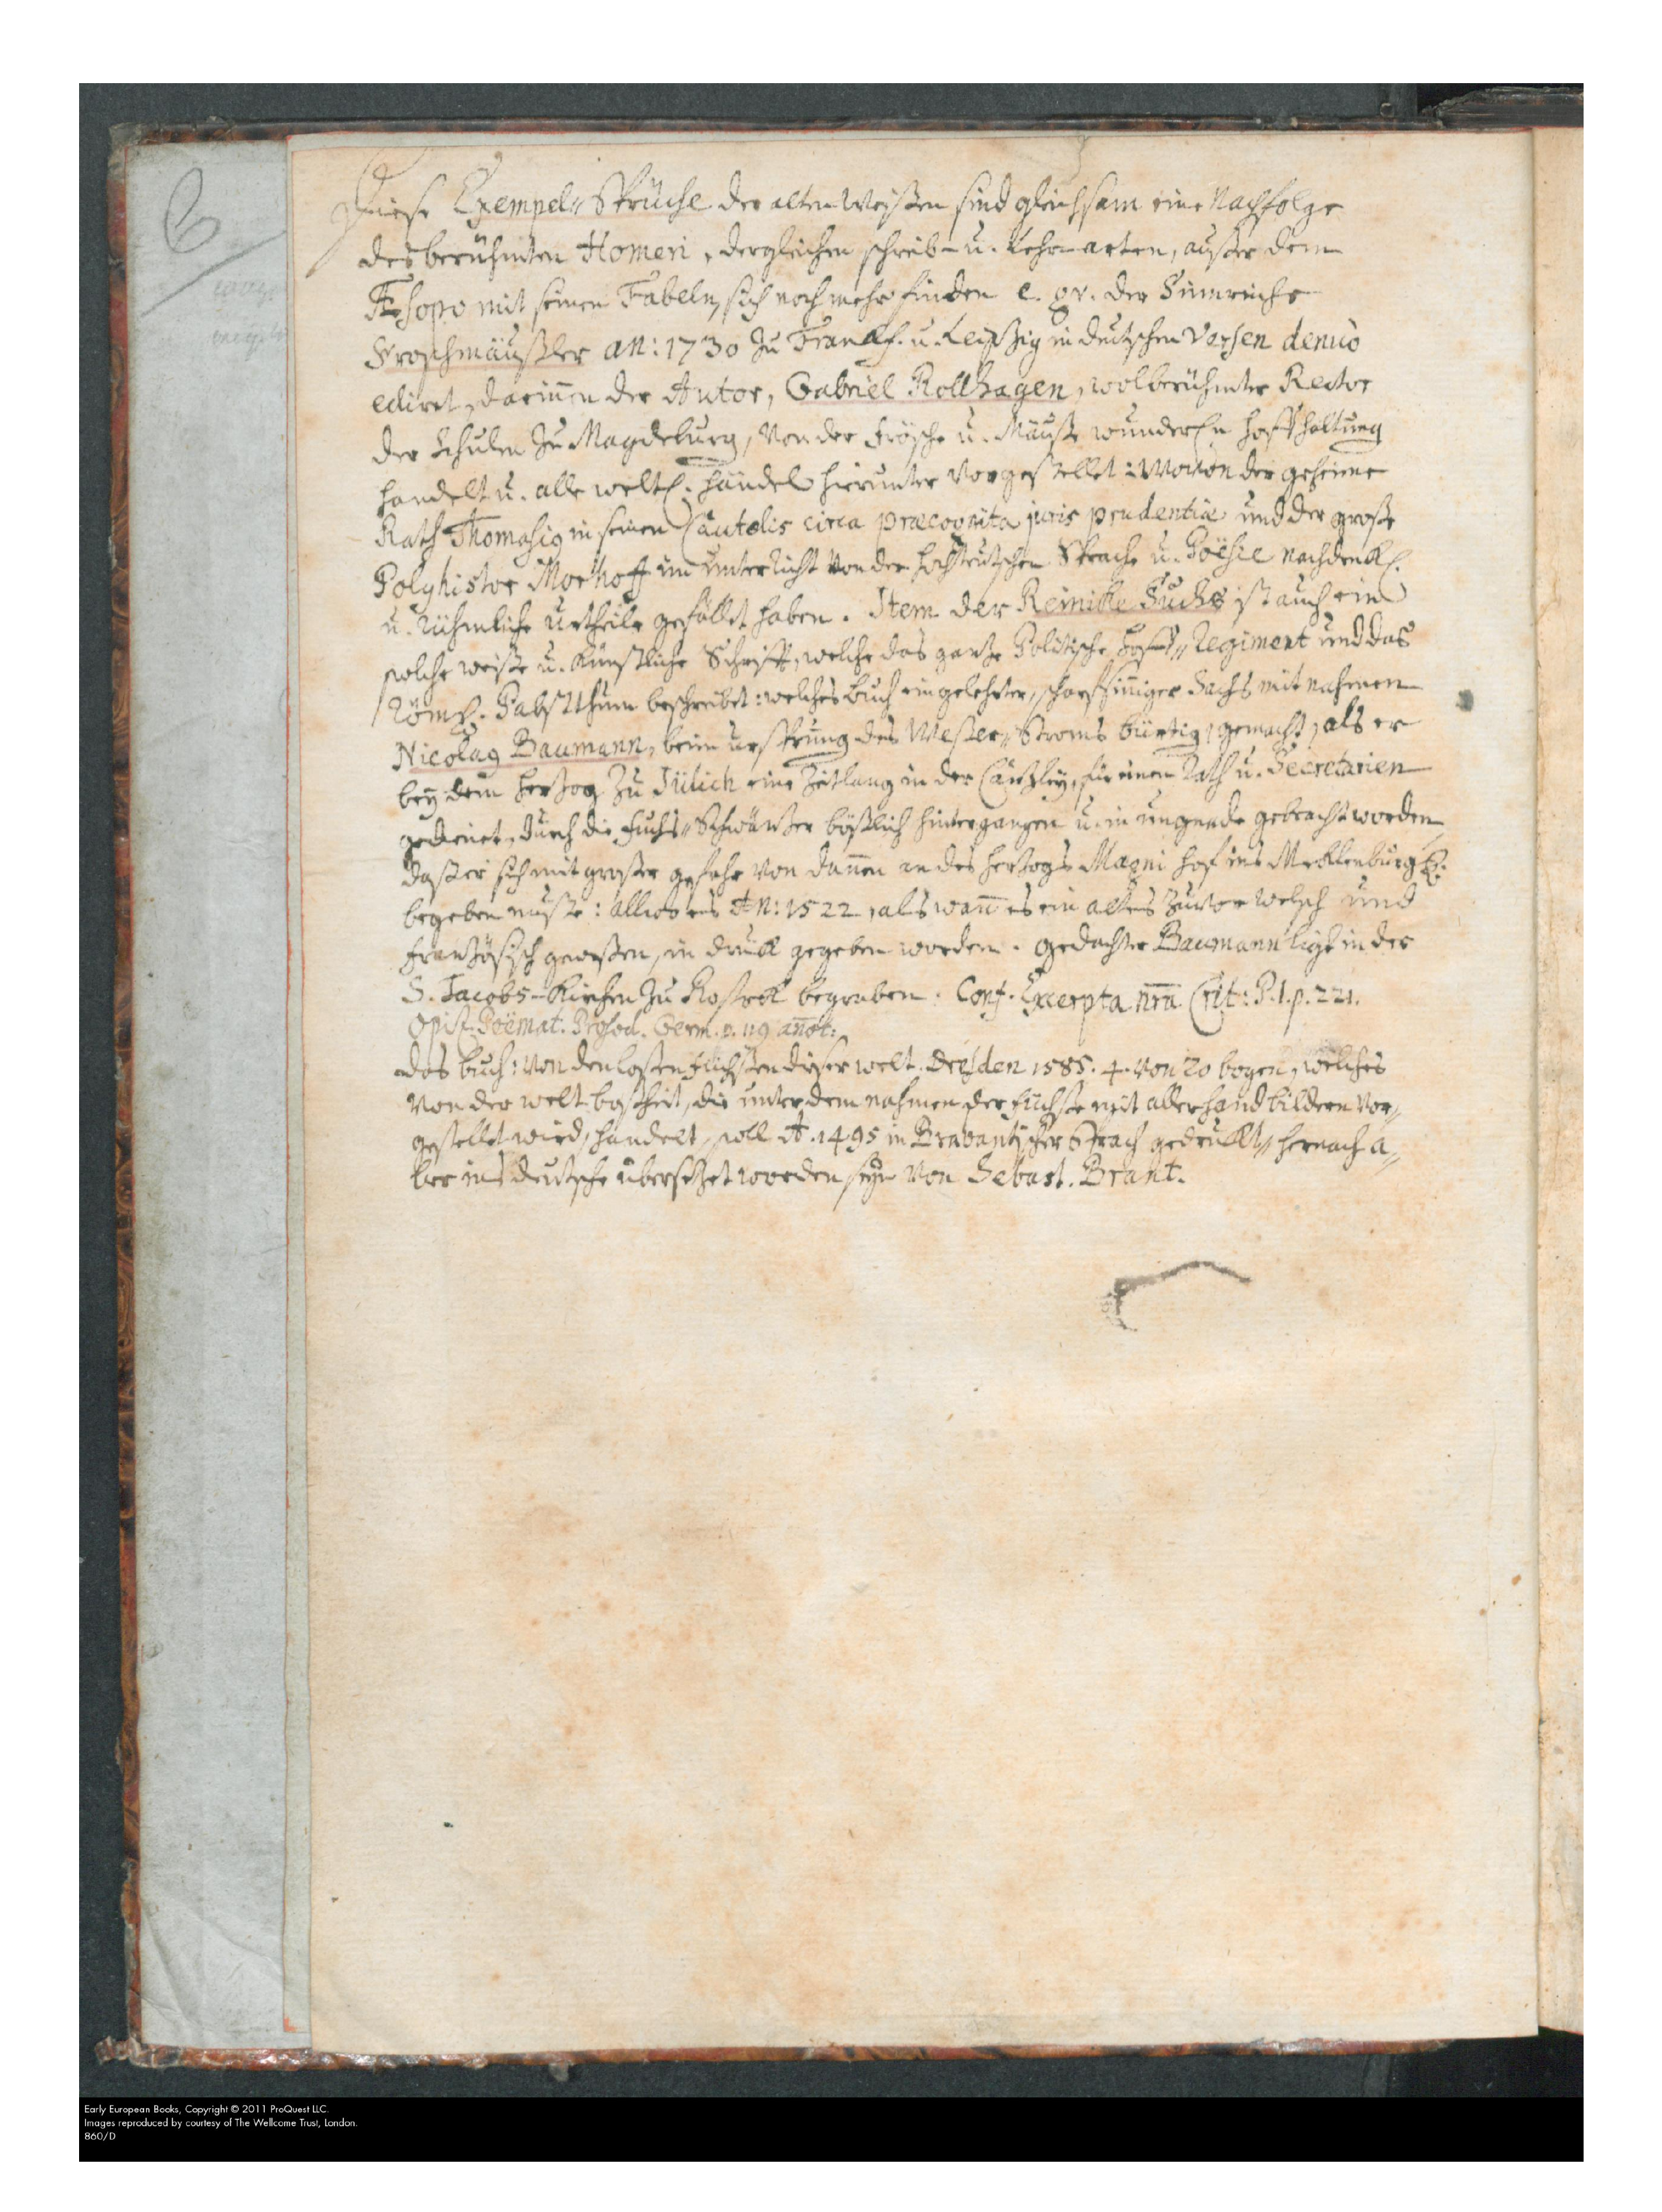 Diese Exempel„ Sprüche der alten Weisen sind gleichsam eine Nachfolge
des berühmten Homeri, dergleichen schreib- u. Lehr-arten, außer dem
Æsopo mit seinen Fabeln, sich noch mehr finden e. gr. der Sinnreiche
Froschmäußler an: 1730 zu Franckf. u. Leipzig in deutschen Versen denuò
ediret, dariñen der Autor, Gabriel Rollhagen, wolberühmter Rector
der Schulen zu Magdeburg, von der Frösche u. Mäuse hoffhaltung
handelt u. alle weltl. händel hierunter vorgestellet: Wovon der geheime
Rath Thomasig in seinen Cautelis circa præcognita juris prudentiæ und der große
Polyhistor Morhoff im unterricht von der hochteutschen Sprache u. Poësie nachdenckl.
u. rühmliche urtheile gefället haben. Item der Reinicke Fuchs ist auch eine
solche weise u. künstliche Schrifft, welche das gantze Politische Hoff„ Regiment und das
Röm. Pabstthum beschreibet: welches buch ein gelehrter, scharffsiñiger Sachs mit nahmen
Nicolag Baumann, beim ursprung des Weser„ Stroms bürtig, gemacht, als er
bey dem Hertzog zu Jülich eine Zeitlang in der Cantzley, für einen Rath u. Secretarien
gedienet, durch die Fuchs„ Schwäntzer bößlich hintergangen u. in ungnade gebracht worden
daß er sich mit großer gefahr von dañen an des Hertzogs Magni hof ins Mecklenburg
begeben muste: allwo es An: 1522, als wañ es ein altes zuvor welsch und
Frantzösisch gewesen, in druck gegeben worden. gedachter Baumann ligt in der
S. Jacobs-Kirchen zu Rostock begraben. Conf. Excerpta nrã Crit: P. I. p. 221.
Opisc. Poëmat. Prosod. Germ. p. 119 añot:
das buch: von den losen Füchsen dieser welt. Dresden 1585. 4. von 20 bogen, welches
von der welt boßheit, die unter dem nahmen der füchse mit allerhand bildern vor„
gestellet wird, handelt, soll A. 1495 in Brabantischer Sprach gedruckt„ hernach a„
ber ins deutsche übersetzet worden seyn von Sebast. Brant.
Early European Books, Copyright © 2011 ProQuest LLC.
Images reproduced by courtesy of The Wellcome Trust, London.
860/D